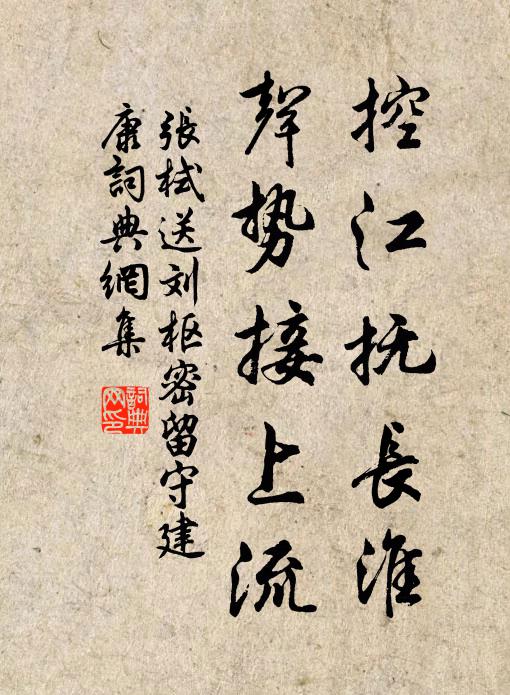 控江抚長淮
聲势接上流
張栻送刘枢密留守建
康詞典網集
詞典
网印